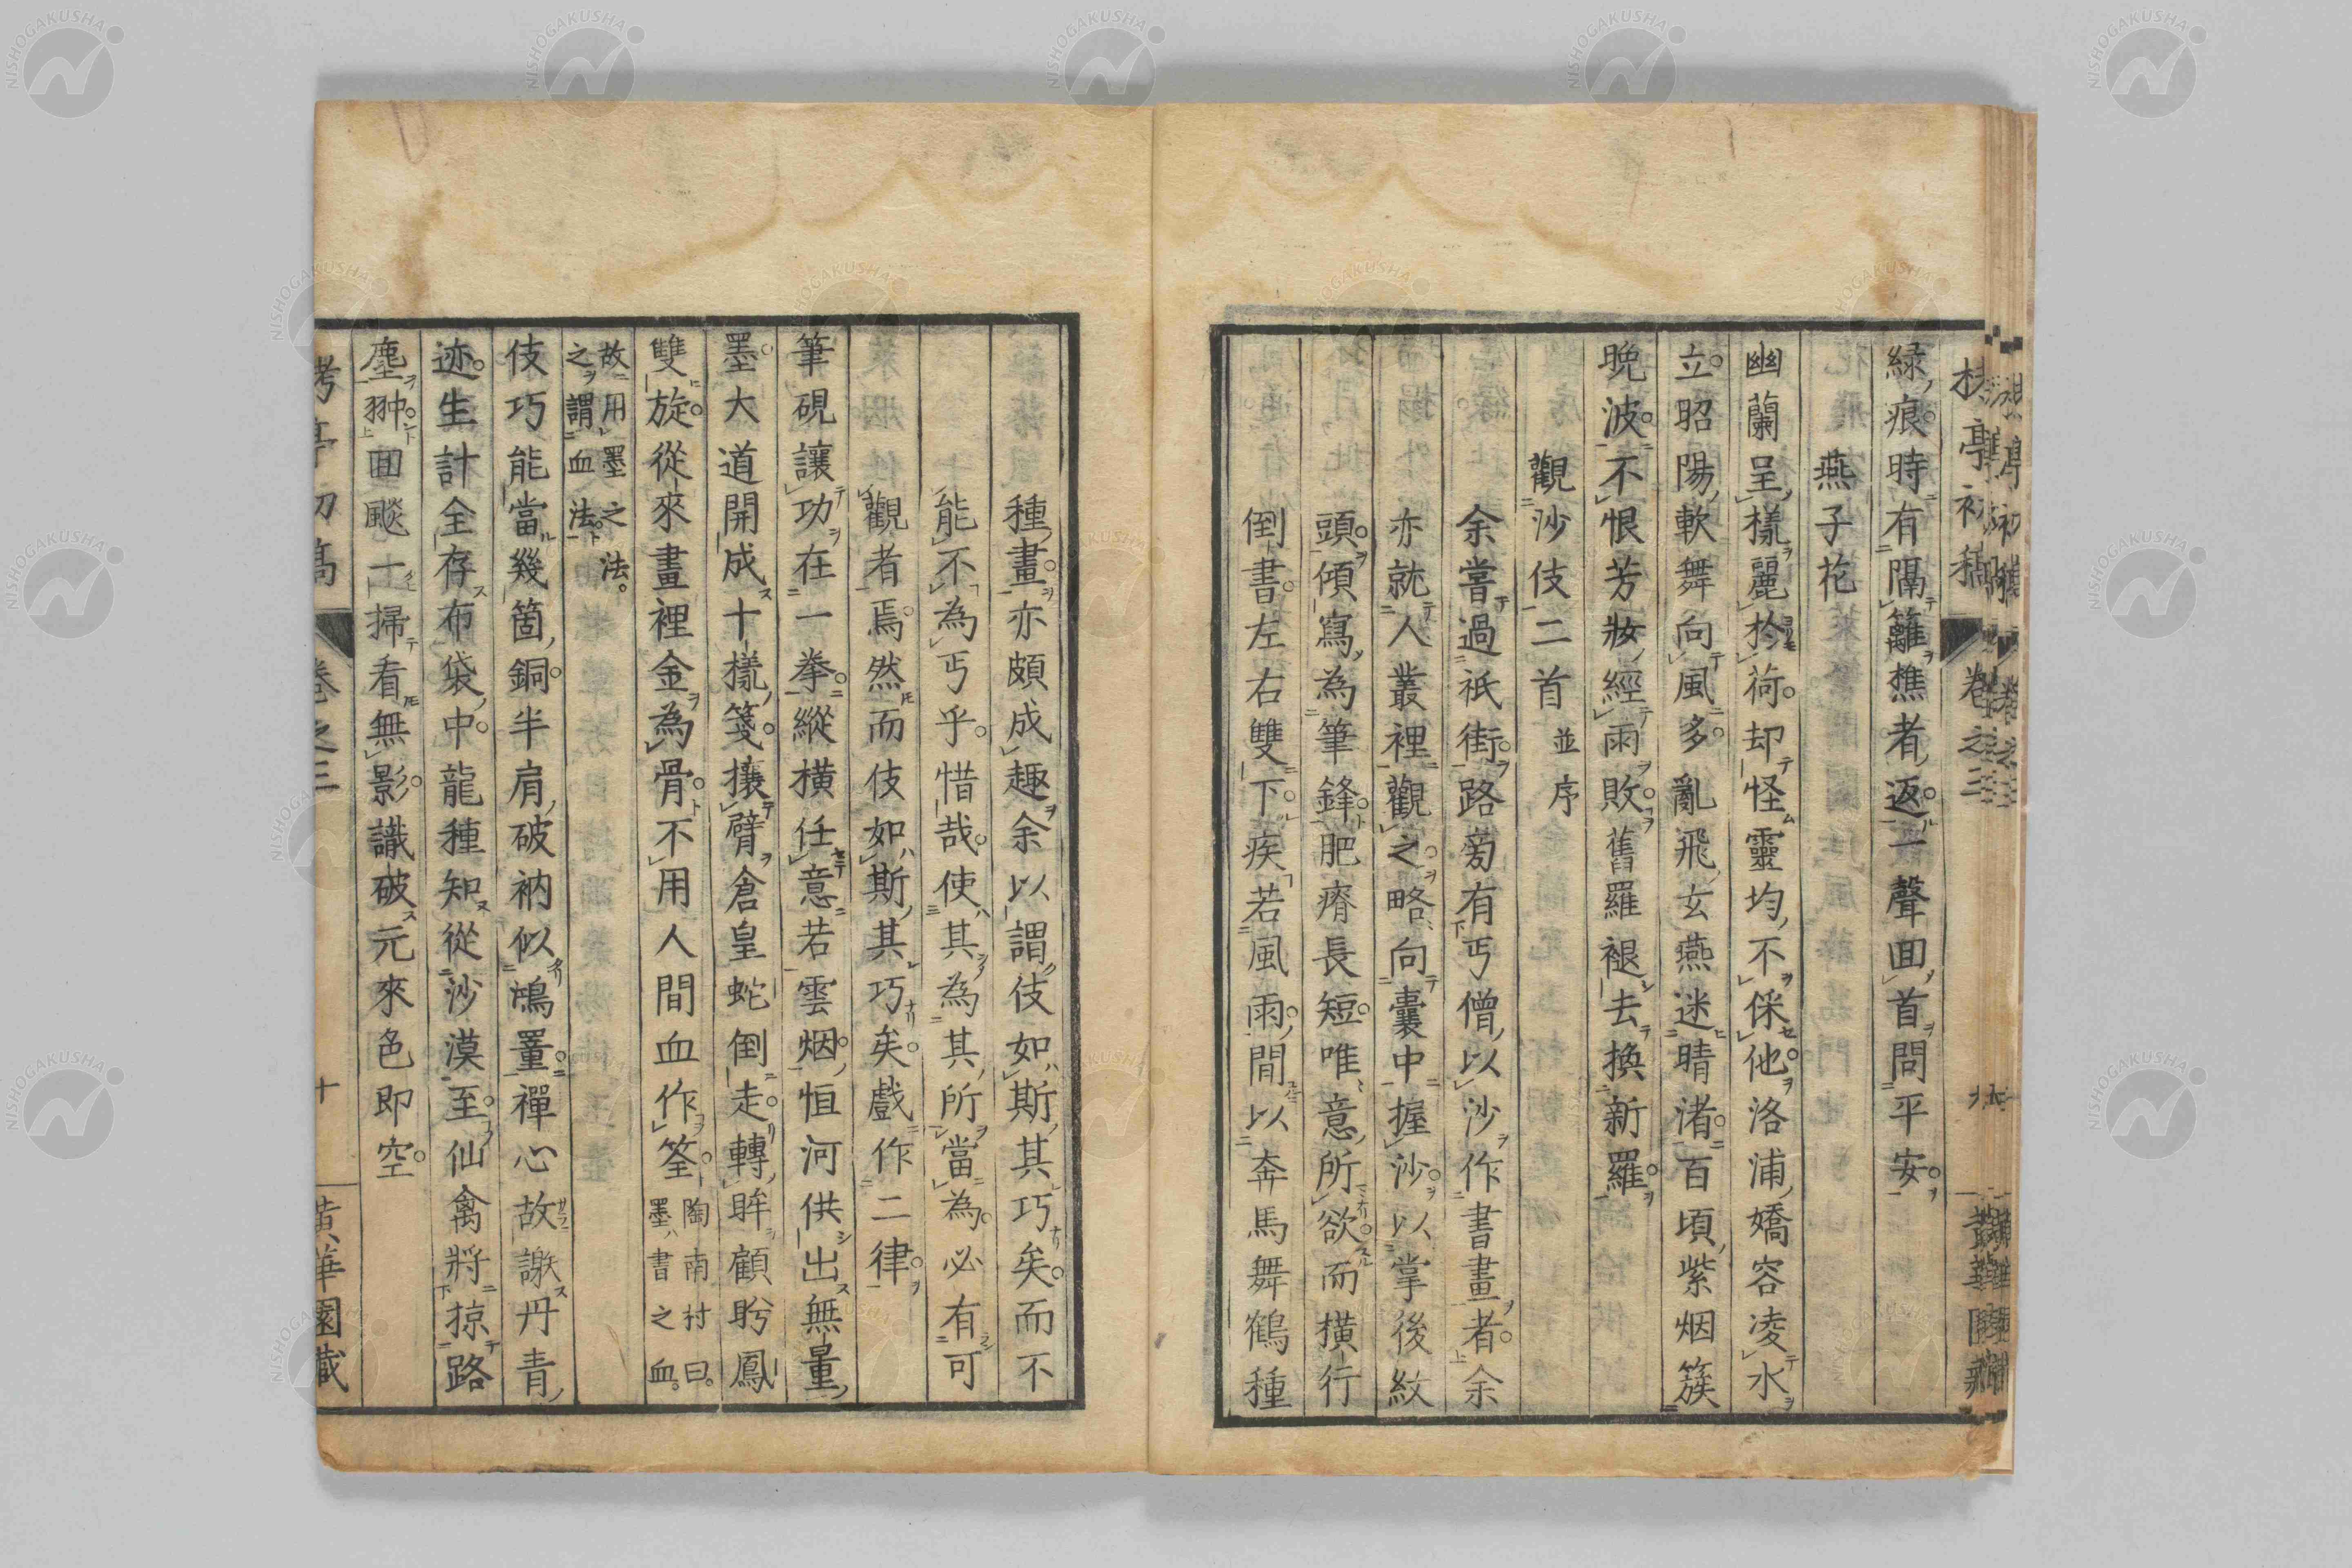 綠痕時有隔籬樵者返一聲回首問平安
燕子花
幽蘭呈樣麗於荷却怪靈均不倸他洛浦嬌容凌水
立昭陽軟舞向風多亂飛玄燕迷晴渚百頃紫烟簇
晚波不恨芳妝經雨敗舊羅褪去換新羅
觀沙伎二首並序
余嘗過祇街路旁有丐僧以沙作書畫者余
亦就人叢裡觀之略向囊中握沙以掌後紋
頭傾寫為筆鋒肥瘠長短唯意所欲而橫行
倒書左右雙下疾若風雨間以奔馬舞鶴種
種畫亦頗成趣余以謂伎如斯其巧矣而不
能不為丐乎惜哉使其為其所當為必有可
觀者焉然而伎如斯其巧矣戲作二律
筆硯讓功在一拳縱橫任意若雲烟恒河供出無量
墨大道開成十樣箋攘臂倉皇蛇倒走轉眸顧盻鳳
雙旋從來畫裡金為骨不用人間血作筌陶南村曰
墨書之血
故用墨之法
之謂血法
伎巧能當幾箇銅半肩破衲似鴻罿禪心故謝丹青
迹生計全存布袋中龍種知從沙漠至仙禽將掠路
塵翀回颷一掃看無影識破元來色即空
卷之三
十
黃華園藏